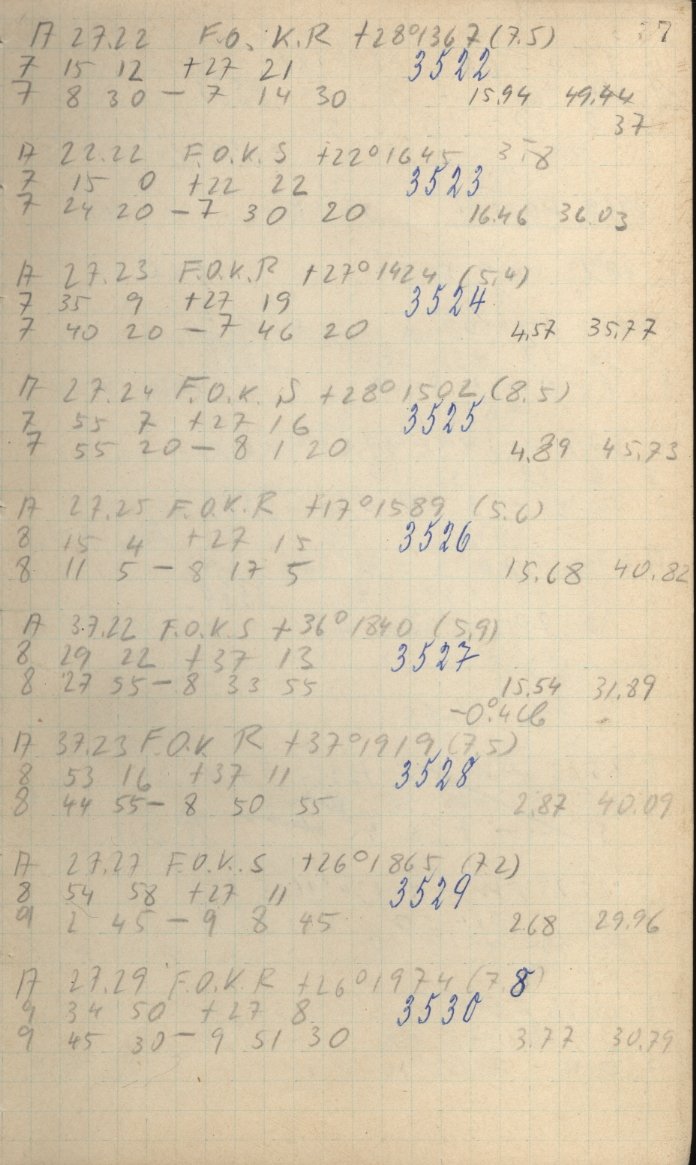 A 27.22 F.O.K.R +28°1367 (7.5)
7 15 12 +27 21 3522
7 8 30 - 7 14 30 15.94 49.44
37
A 22.22 F.O.K.S +22°1645 3.8
7 15 0 +22 22 3523
7 24 20 - 7 30 20 16.46 36.03
A 27.23 F.O.K.R +27°1424 (5.4)
7 35 9 +27 19 3524
7 40 20 - 7 46 20 4.57 35.77
A 27.24 F.O.K.S +28°1502 (8.5)
7 55 7 +27 16 3525
7 55 20 - 8 1 20 4.89 45.73
A 27.25 F.O.K.R +17°1589 (5.6)
8 15 4 +27 15 3526
8 11 5 - 8 17 5 15.68 40.82
A 37.22 F.O.K.S +36°1840 (5.9)
8 29 22 +37 13 3527
8 27 55 - 8 33 55 15.54 31.89
A 37.23 F.O.K R +37°1919 (7.5)
8 53 16 +37 11 3528
8 44 55 - 8 50 55 2.87 40.09
A 27.27 F.O.K.S +26°1865 (7.2)
8 54 58 +27 11 3529
9 2 45 - 9 8 45 2.68 29.96
A 27.29 F.O.K.R +26°1974 (7.8)
9 34 50 +27 8 3530
9 45 30 - 9 51 30 3.77 30.79